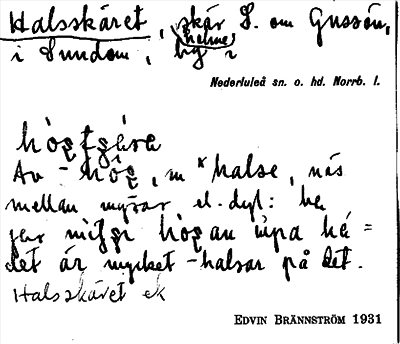 Halsskäret, skär S. om Gussön,
i Sundom, by i
holme
Nederluleå sn. o. hd. Norrb. l.
Av - , m × halse, näs
mellan myrar el. dyl: he
jer an upa hé =
det är mycket -halsar på det.
Halsskäret ek
EDVIN BRÄNNSTRÖM 1931